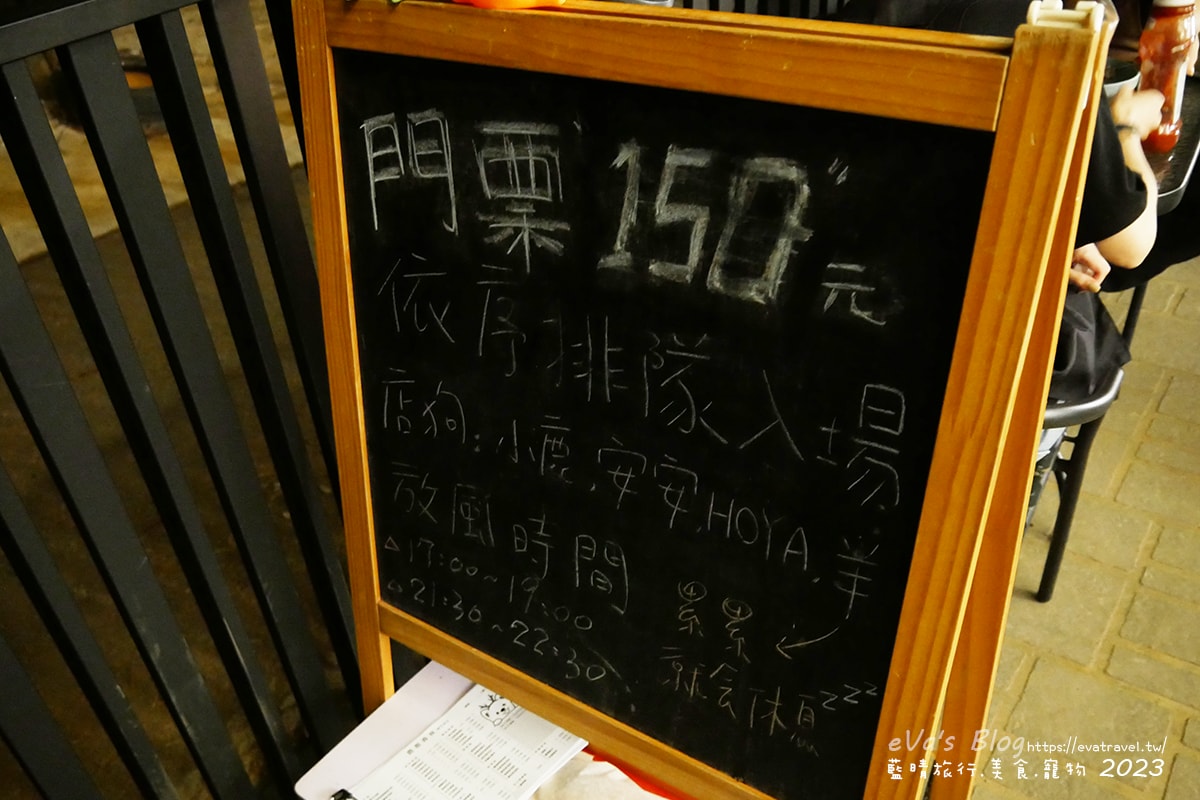 門票150元
依序排隊入場
店狗:小鹿.安安.HOYA.羊
放風時間
△17:00~19:00
△21:30~22:30
累累
就會休息zzz
eVa's Blog https://evatravel.tw/
藍晴旅行.美食.寵物 2023